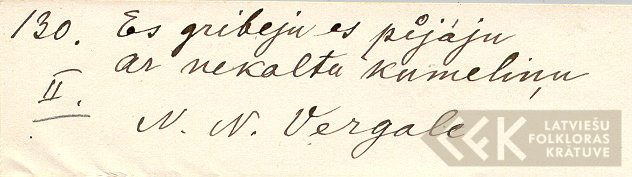 130. Es gribeju es pījāju
ar nekaltu kumeliņu
II.
N. N. Vergale
LATVIEŠU
FOLKLORAS
KRĀTUVE